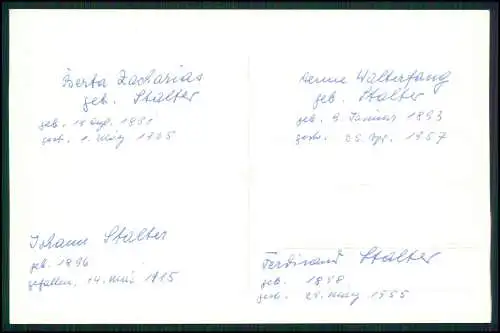 Berta Zacharias
geb. Stalter
geb. 15 Aug. 1891
gest. 1. März 1905
Walterfang
geb. Stalter
geb. 9 Januar 1893
gest. 25. Apr. 1957
Johann Stalter
geb. 1896
gefallen, 14. Mai 1915
Ferdinand Stalter
geb. 1898
gest. 29. März 1955